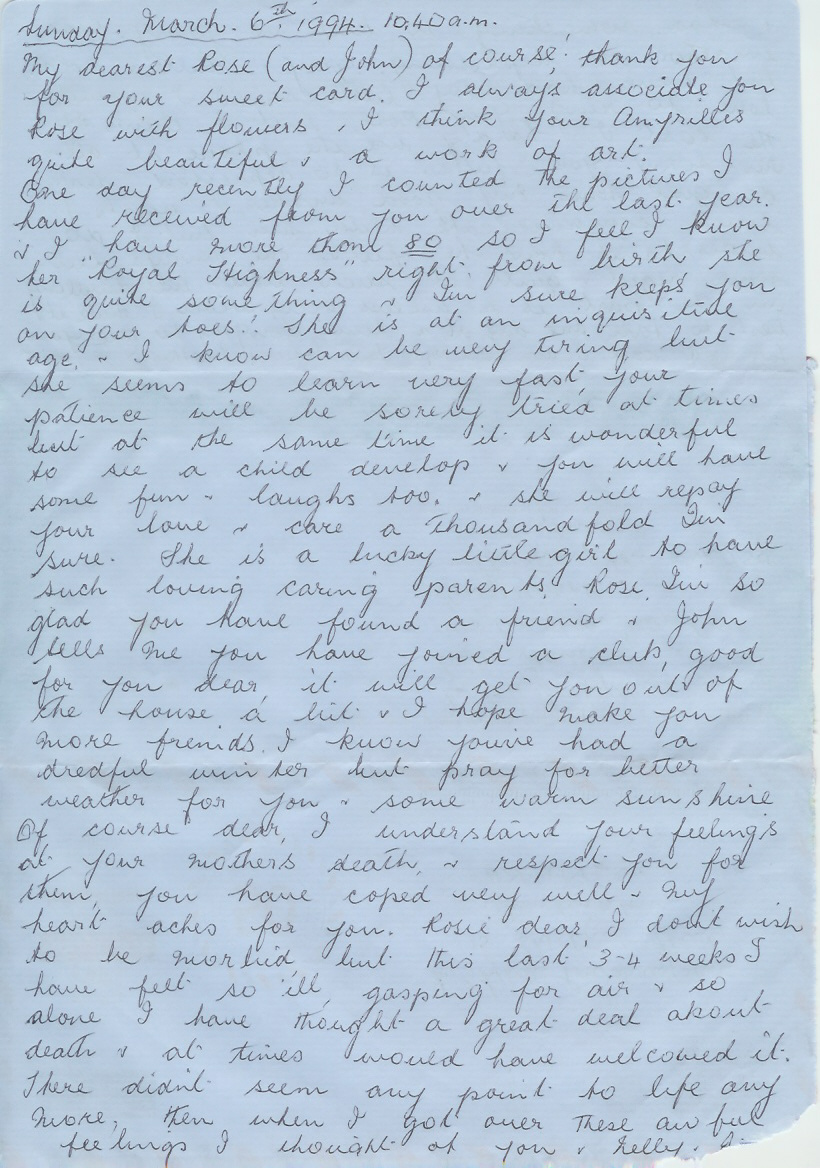 Sunday. March. 6th. 1994. 10.40 a.m.
My dearest Rose (and John) of course! thank you
for your sweet card. I always associate you
Rose with flowers, I think your Amyrillis
quite beautiful & a work of art.
One day recently I counted the pictures I
have received from you over the last year.
& I have more than 80 so I feel I know
her "Royal Highness" right from birth she
is quite something & I'm sure keeps you
on your toes!! She is at an inquisitive
age, & I know can be very tiring but
she seems to learn very fast your
patience will be sorely tried at times
but at the same time it is wonderful
to see a child develop & you will have
some fun & laughs too. & she will repay
your love & care a thousand fold I'm
sure. She is a lucky little girl to have
such loving caring parents. Rose, I'm so
glad you have found a friend & John
tells me you have joined a club, good
for you dear, it will get you out of
the house a bit & I hope make you
more frenids. I know you've had a
dredful winter but pray for better
weather for you & some warm sunshine
Of course dear, I understand your feelings
at your mothers death, & respect you for
them, you have coped very well & my
heart aches for you. Rosie dear I don't wish
to be morbid but this last 3-4 weeks I
have felt so ill, gasping for air & so
alone I have thought a great deal about
death & at times would have welcomed it.
There didn't seem any point to life any
more, then when I got over these awful
feelings I thought of you & Kelly.